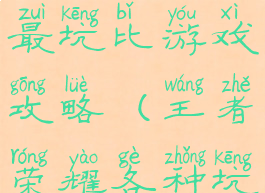 zuì kēng bǐ yóu xì
最坑比游戏
gōng lüè wáng zhě
攻略（王者
róng yào gè zhǒng kēng
荣耀各种坑